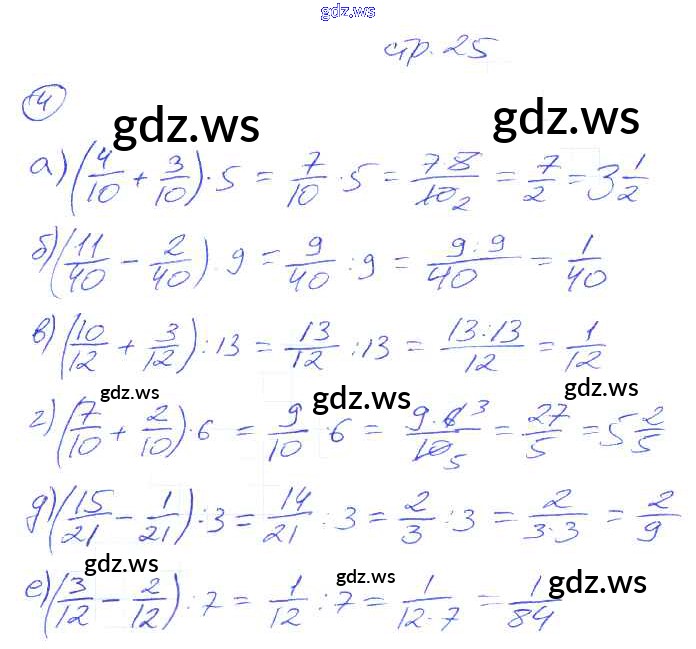 gdz.ws
стр. 25
4
gdz.ws gdz.ws
а) (4/10 + 3/10) · 5 = 7/10 · 5 = 7·5/10 2 = 7/2 = 3 1/2
б) (11/40 − 2/40) · 9 = 9/40 : 9 = 9:9/40 = 1/40
в) (10/12 + 3/12) : 13 = 13/12 : 13 = 13:13/12 = 1/12
gdz.ws gdz.ws gdz.ws
г) (7/10 + 2/10) · 6 = 9/10 · 6 = 9·6 3/10 5 = 27/5 = 5 2/5
д) (15/21 − 1/21) : 3 = 14/21 : 3 = 2/3 : 3 = 2/3·3 = 2/9
gdz.ws gdz.ws gdz.ws
е) (3/12 − 2/12) : 7 = 1/12 : 7 = 1/12·7 = 1/84